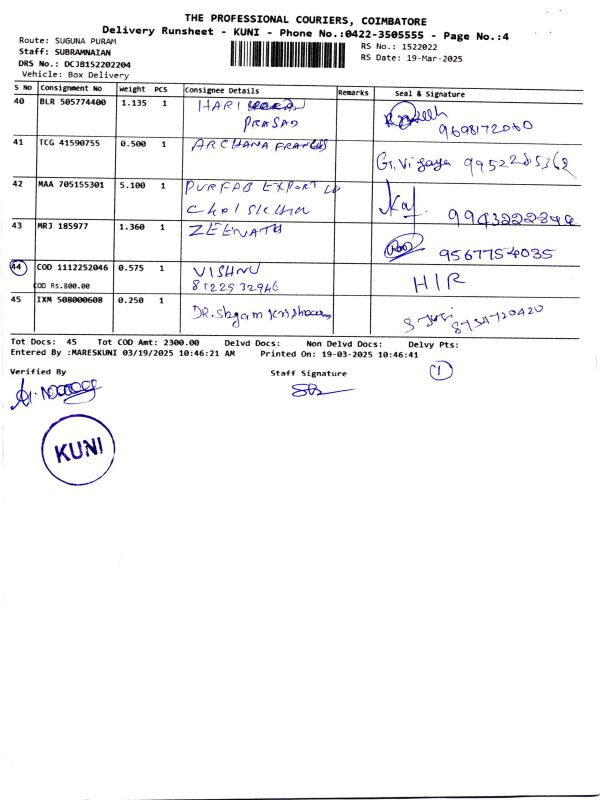 THE PROFESSIONAL COURIERS, COIMBATORE
Delivery Runsheet - KUNI - Phone No.:0422-3505555 - Page No.:4
Route: SUGUNA PURAM
RS No.: 1522022
Staff: SUBRAMNAIAN
RS Date: 19-Mar-2025
DRS No.: DCJB152202204
Vehicle: Box Delivery
S No Consignment No Weight PCS Consignee Details Remarks Seal & Signature
40 BLR 505774400 1.135 1 HARI
PRASAD
9698172060
41 TCG 41590755 0.500 1 ARCHANA FRANCIS
G.Vijaya 9952285362
42 MAA 705155301 5.100 1 PURFAB EXPORT
9943222844
43 MRJ 185977 1.360 1 ZEENATH
9567754035
44 COD 1112252046 0.575 1 VISHNU
COD Rs.800.00 8122532946
HIR
45 IXM 508000608 0.250 1 DR.
Tot Docs: 45 Tot COD Amt: 2300.00 Delvd Docs: Non Delvd Docs: Delvy Pts:
Entered By :MARESKUNI 03/19/2025 10:46:21 AM Printed On: 19-03-2025 10:46:41
Verified By
Staff Signature
1
KUNI